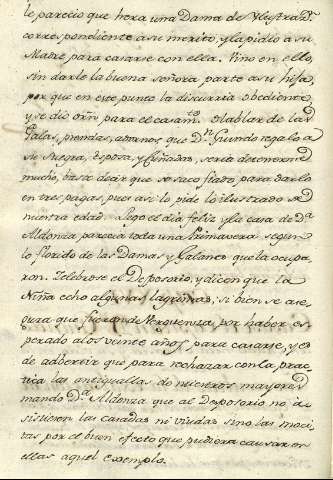 le parecio que hera una Dama de Ylustra Dn.
correspondiente a su merito, y la pidio a su
Madre para casarse con ella. Vino en ello,
sin darle la buena señora parte a su hija,
por que en este punto la discurria obediente,
y se dio orn para el casamto. Hablar de las
Galas, prendas, adornos que Dn. Guindo regalo a
su Suegra, Esposa, y Cuñadas, seria detenerme
mucho, baste decir que se saco fiado, para darlo
en tres pagas, pues asi lo pide lo ilustrado de
nuestra edad. Llego el dia feliz y la casa de Da.
Aldonza parecia toda una Primavera segun
lo florido de las Damas, y Galanes que la ocupa-
ron. Zelebrose el Desposorio, y dicen que la
Niña echo algunas lagrimas, si bien se ase-
gura que fueron de Verguenza, por haber es-
perado a los veinte años, para casarse, y es
de advertir que para rechazar con la prac-
tica las antiguallas de nuestros mayores
mando Da. Aldonza que al Desposorio no a-
sistiesen las casadas ni viudas sino las moci-
tas por el buen efecto que pudiera causar en
ellas aquel exemplo.